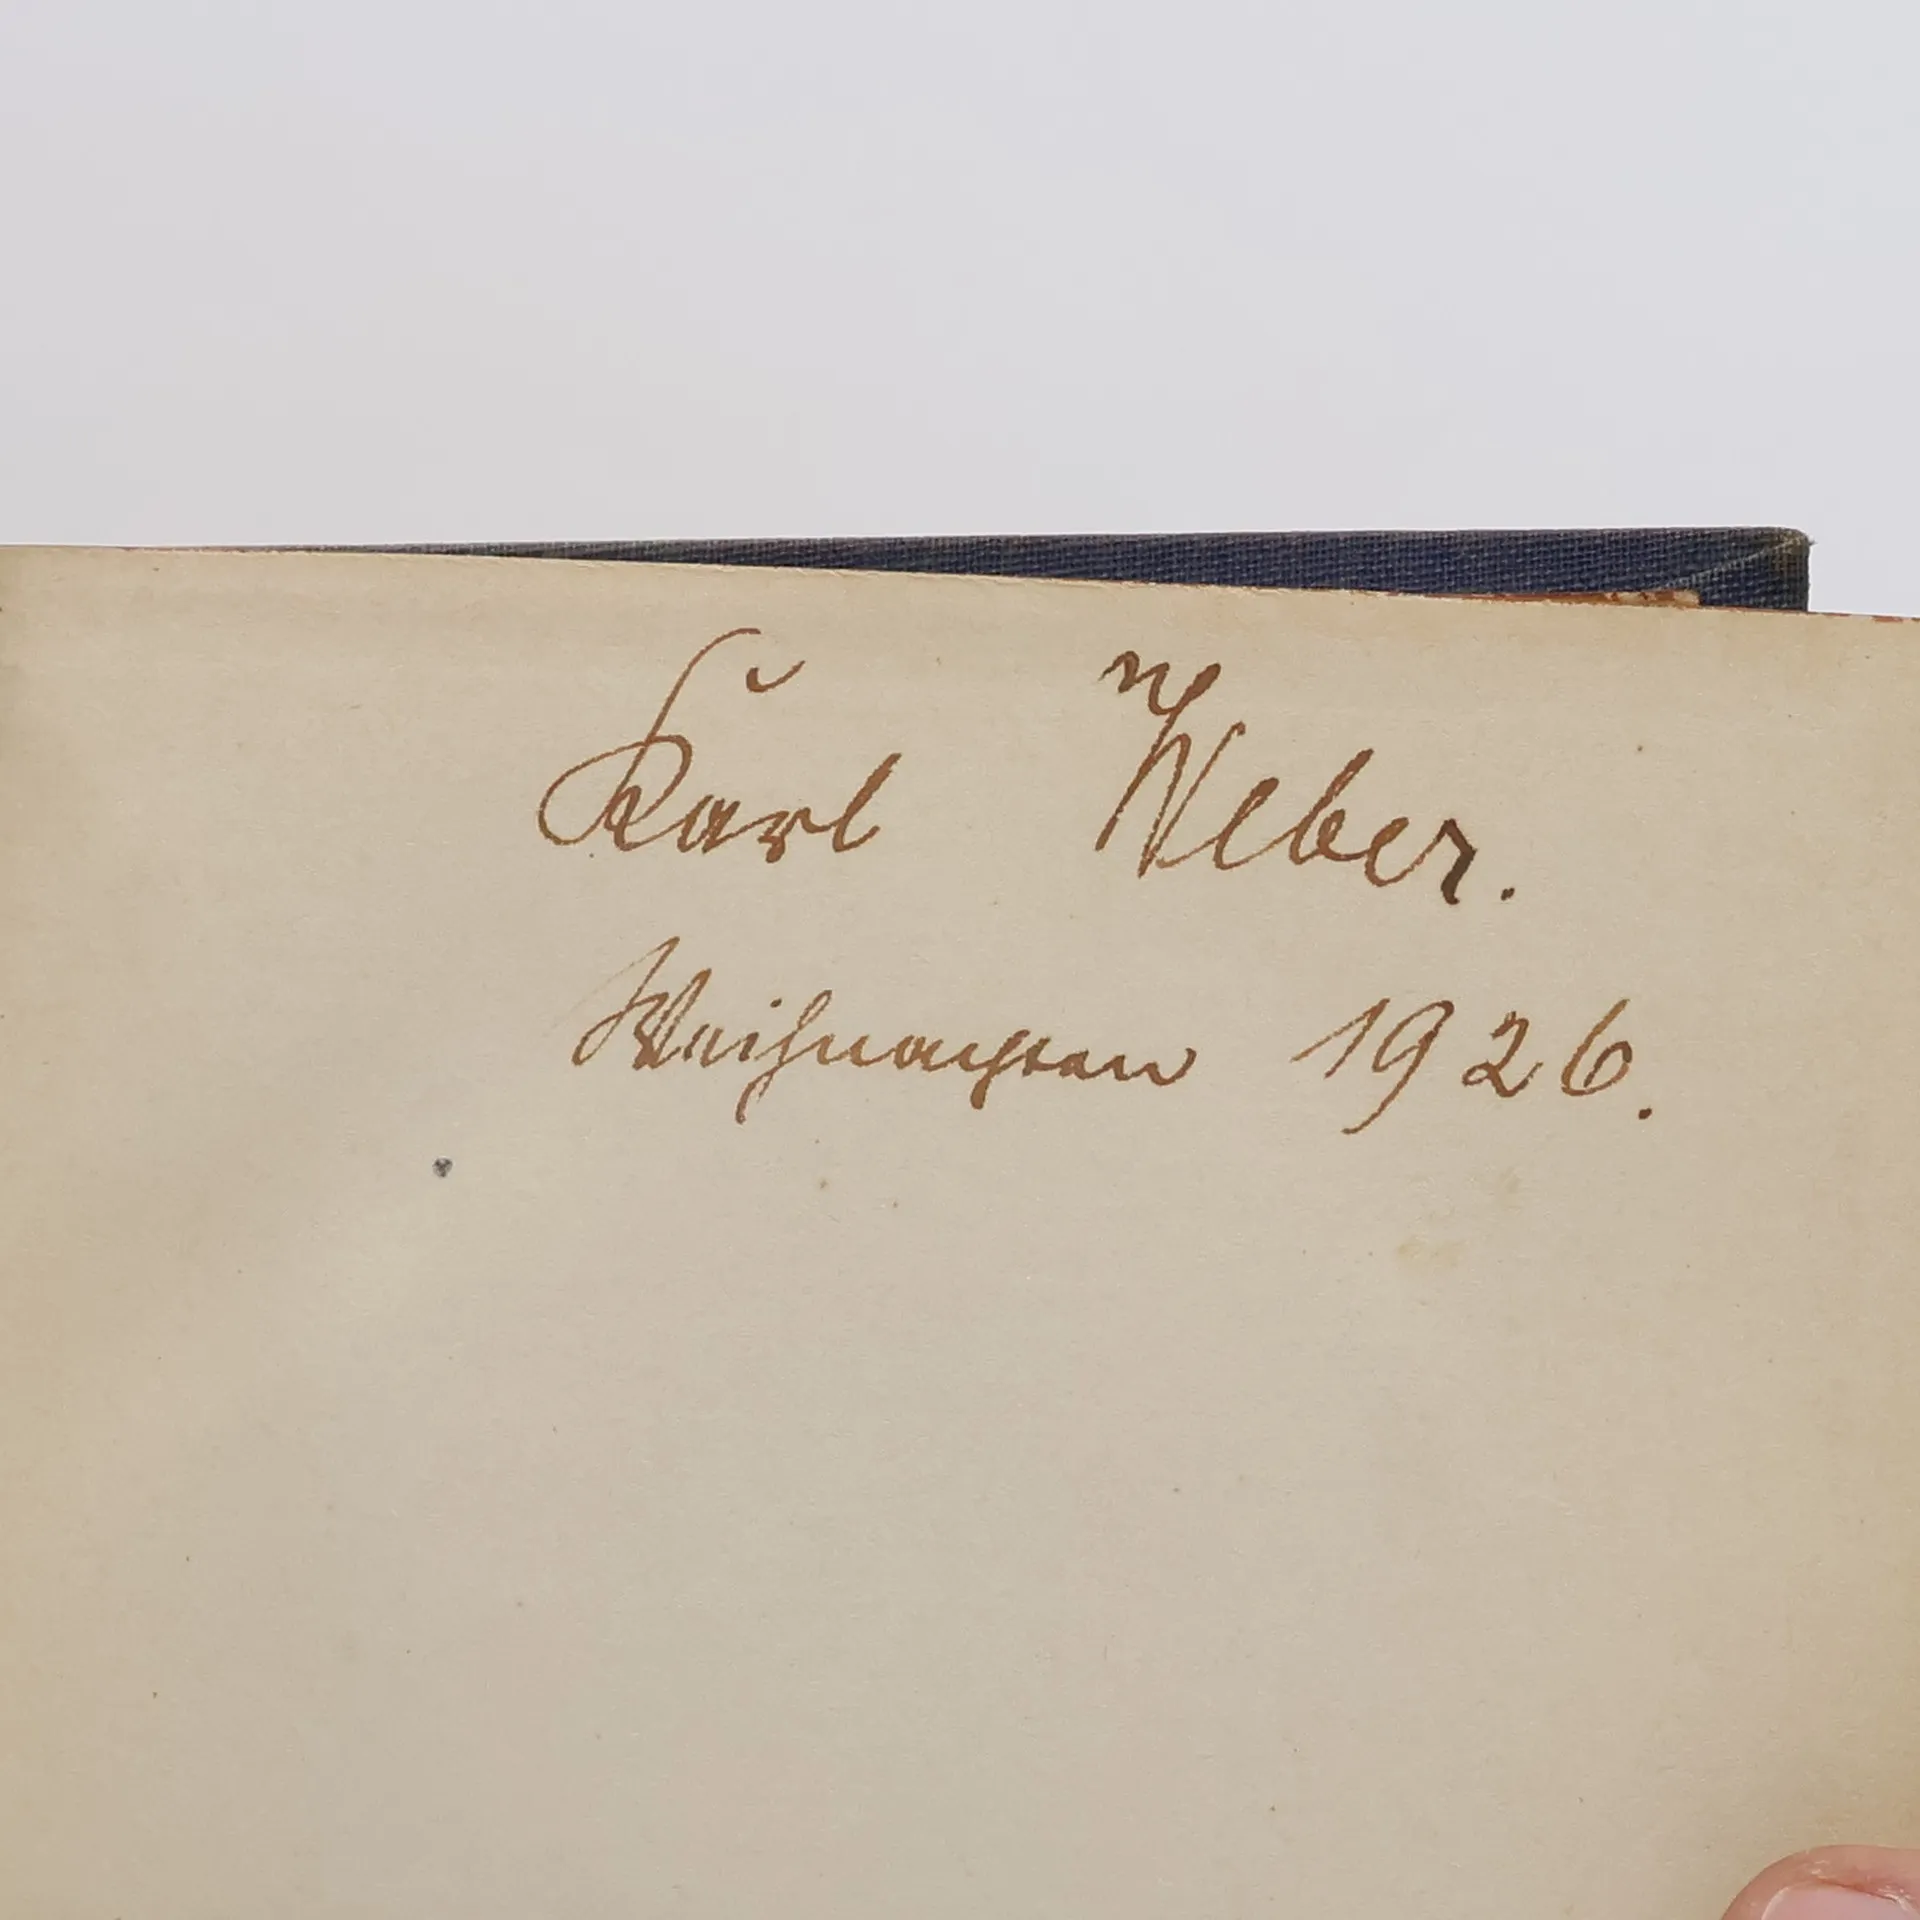 Karl Weber.
Weihnachten 1926.